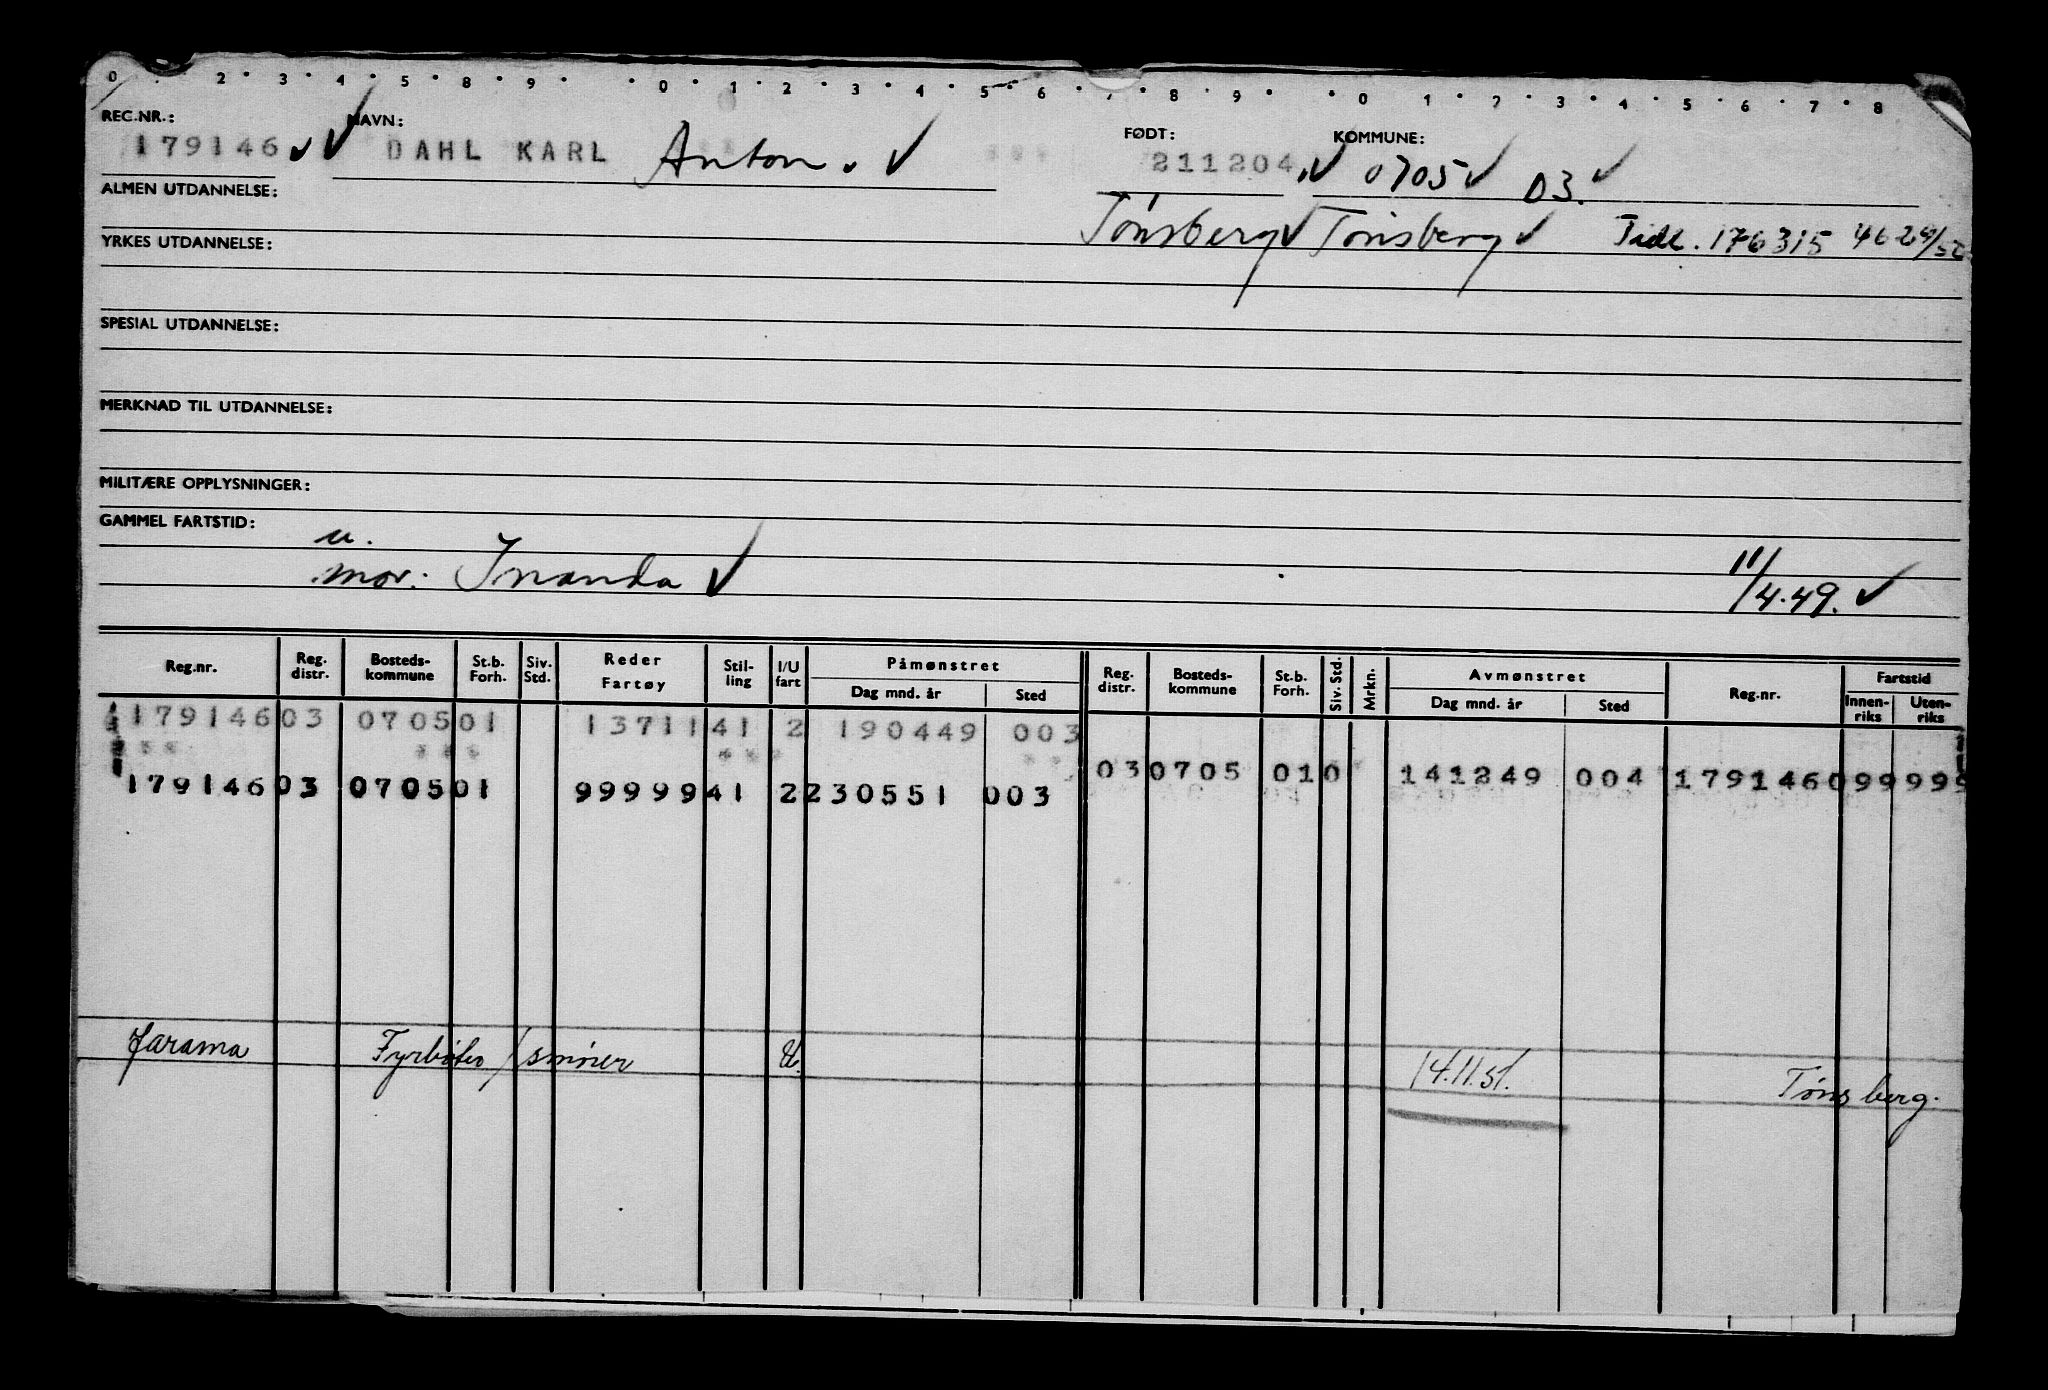 0 · 2 · 3 · 4 · 5 · 8 · 9 · · 0 · 1 · 2 · 3 · 4 · 5 · 6 · 7 · 8 · 9 · · 0 · 1 · 2 · 3 · 4 · 5 · 6 · 7 · 8
REC.NR.: NAVN: FØDT: KOMMUNE:
179146 ✓ ✓ DAHL KARL Anton. ✓ 211204. ✓ 0705 ✓ 03. ✓
ALMEN UTDANNELSE:
Tønsberg ✓ Tønsberg ✓ Tidl. 176315
YRKES UTDANNELSE:
SPESIAL UTDANNELSE:
MERKNAD TIL UTDANNELSE:
MILITÆRE OPPLYSNINGER:
GAMMEL FARTSTID:
u.
mor. Inanda ✓ 11/4.49. ✓
Reg.nr. Reg. distr. Bosteds-kommune St.b. Forh. Siv. Std. Reder Fartøy Stil-ling I/U fart Påmønstret Dag mnd. år Sted Reg. distr. Bosteds-kommune St.b. Forh. Siv. Std. Mrkn. Avmønstret Dag mnd. år Sted Reg.nr. Fartstid Innen-riks Uten-riks
179146 03 0705 01 13711 41 2 190449 003
* * * * * * * * * * *
03 0705 01 0 141249 004 179146 099 999
179146 03 0705 01 99999 41 2 230551 003
Jarama Fyrbøter / smører U. 14.11.51. Tønsberg.